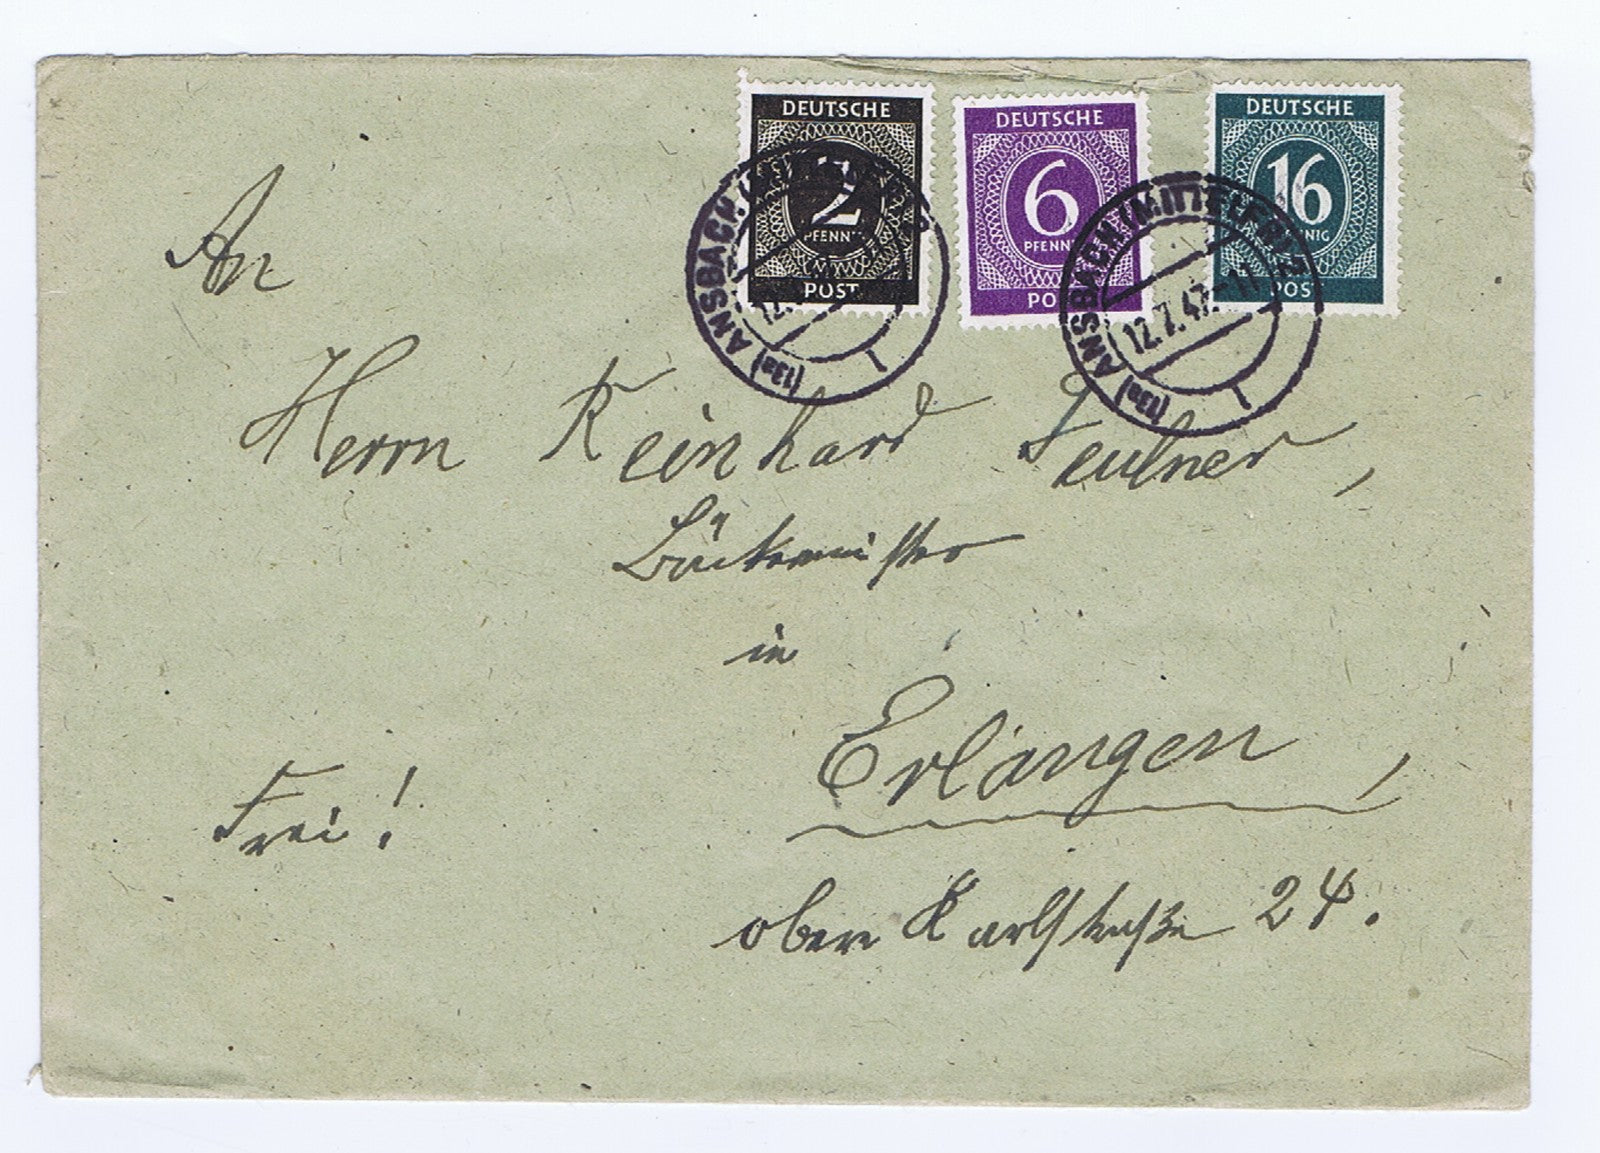 DEUTSCHE
2
PFENNIG
POST
DEUTSCHE
6
PFENNIG
POST
DEUTSCHE
16
PFENNIG
POST
(13a) ANSBACH (MITTELFR) 2
12.7.47.-11
(13a) ANSBACH
12.
An
Herrn Reinhard
Bäckermeister
in
Erlangen,
Frei!
obere Karlstraße 24.